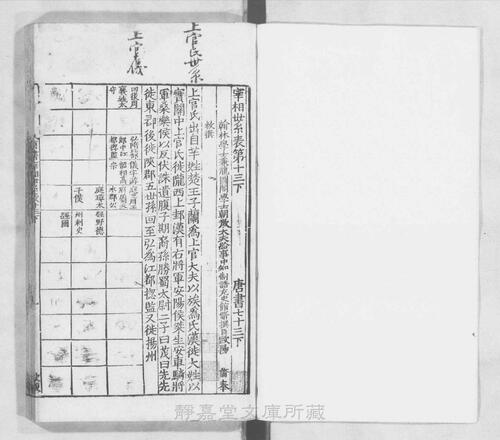 上官氏世系
上官儀
宰相世系表第十三下
唐書七十三下
翰林學士兼龍圖閣學士朝散大夫給事中知制誥充史館脩撰臣歐陽
脩奉
敕撰
上官氏出自芈姓楚王子蘭爲上官大夫以族爲氏漢徙大姓以
實關中上官氏徙隴西上邽漢有右將軍安陽侯桀生安車騎將
軍桑樂侯以反伏誅遺腹子期裔孫勝蜀太尉二子曰茂曰先先
徙東郡後徙陝郡五世孫回至弘爲江都揔監又徙揚州
回後周
襄城太
守
弘隋
儀字游
庭芝
庭璋太
子僕
經野德
州刺史
經國
靜嘉堂文庫所藏